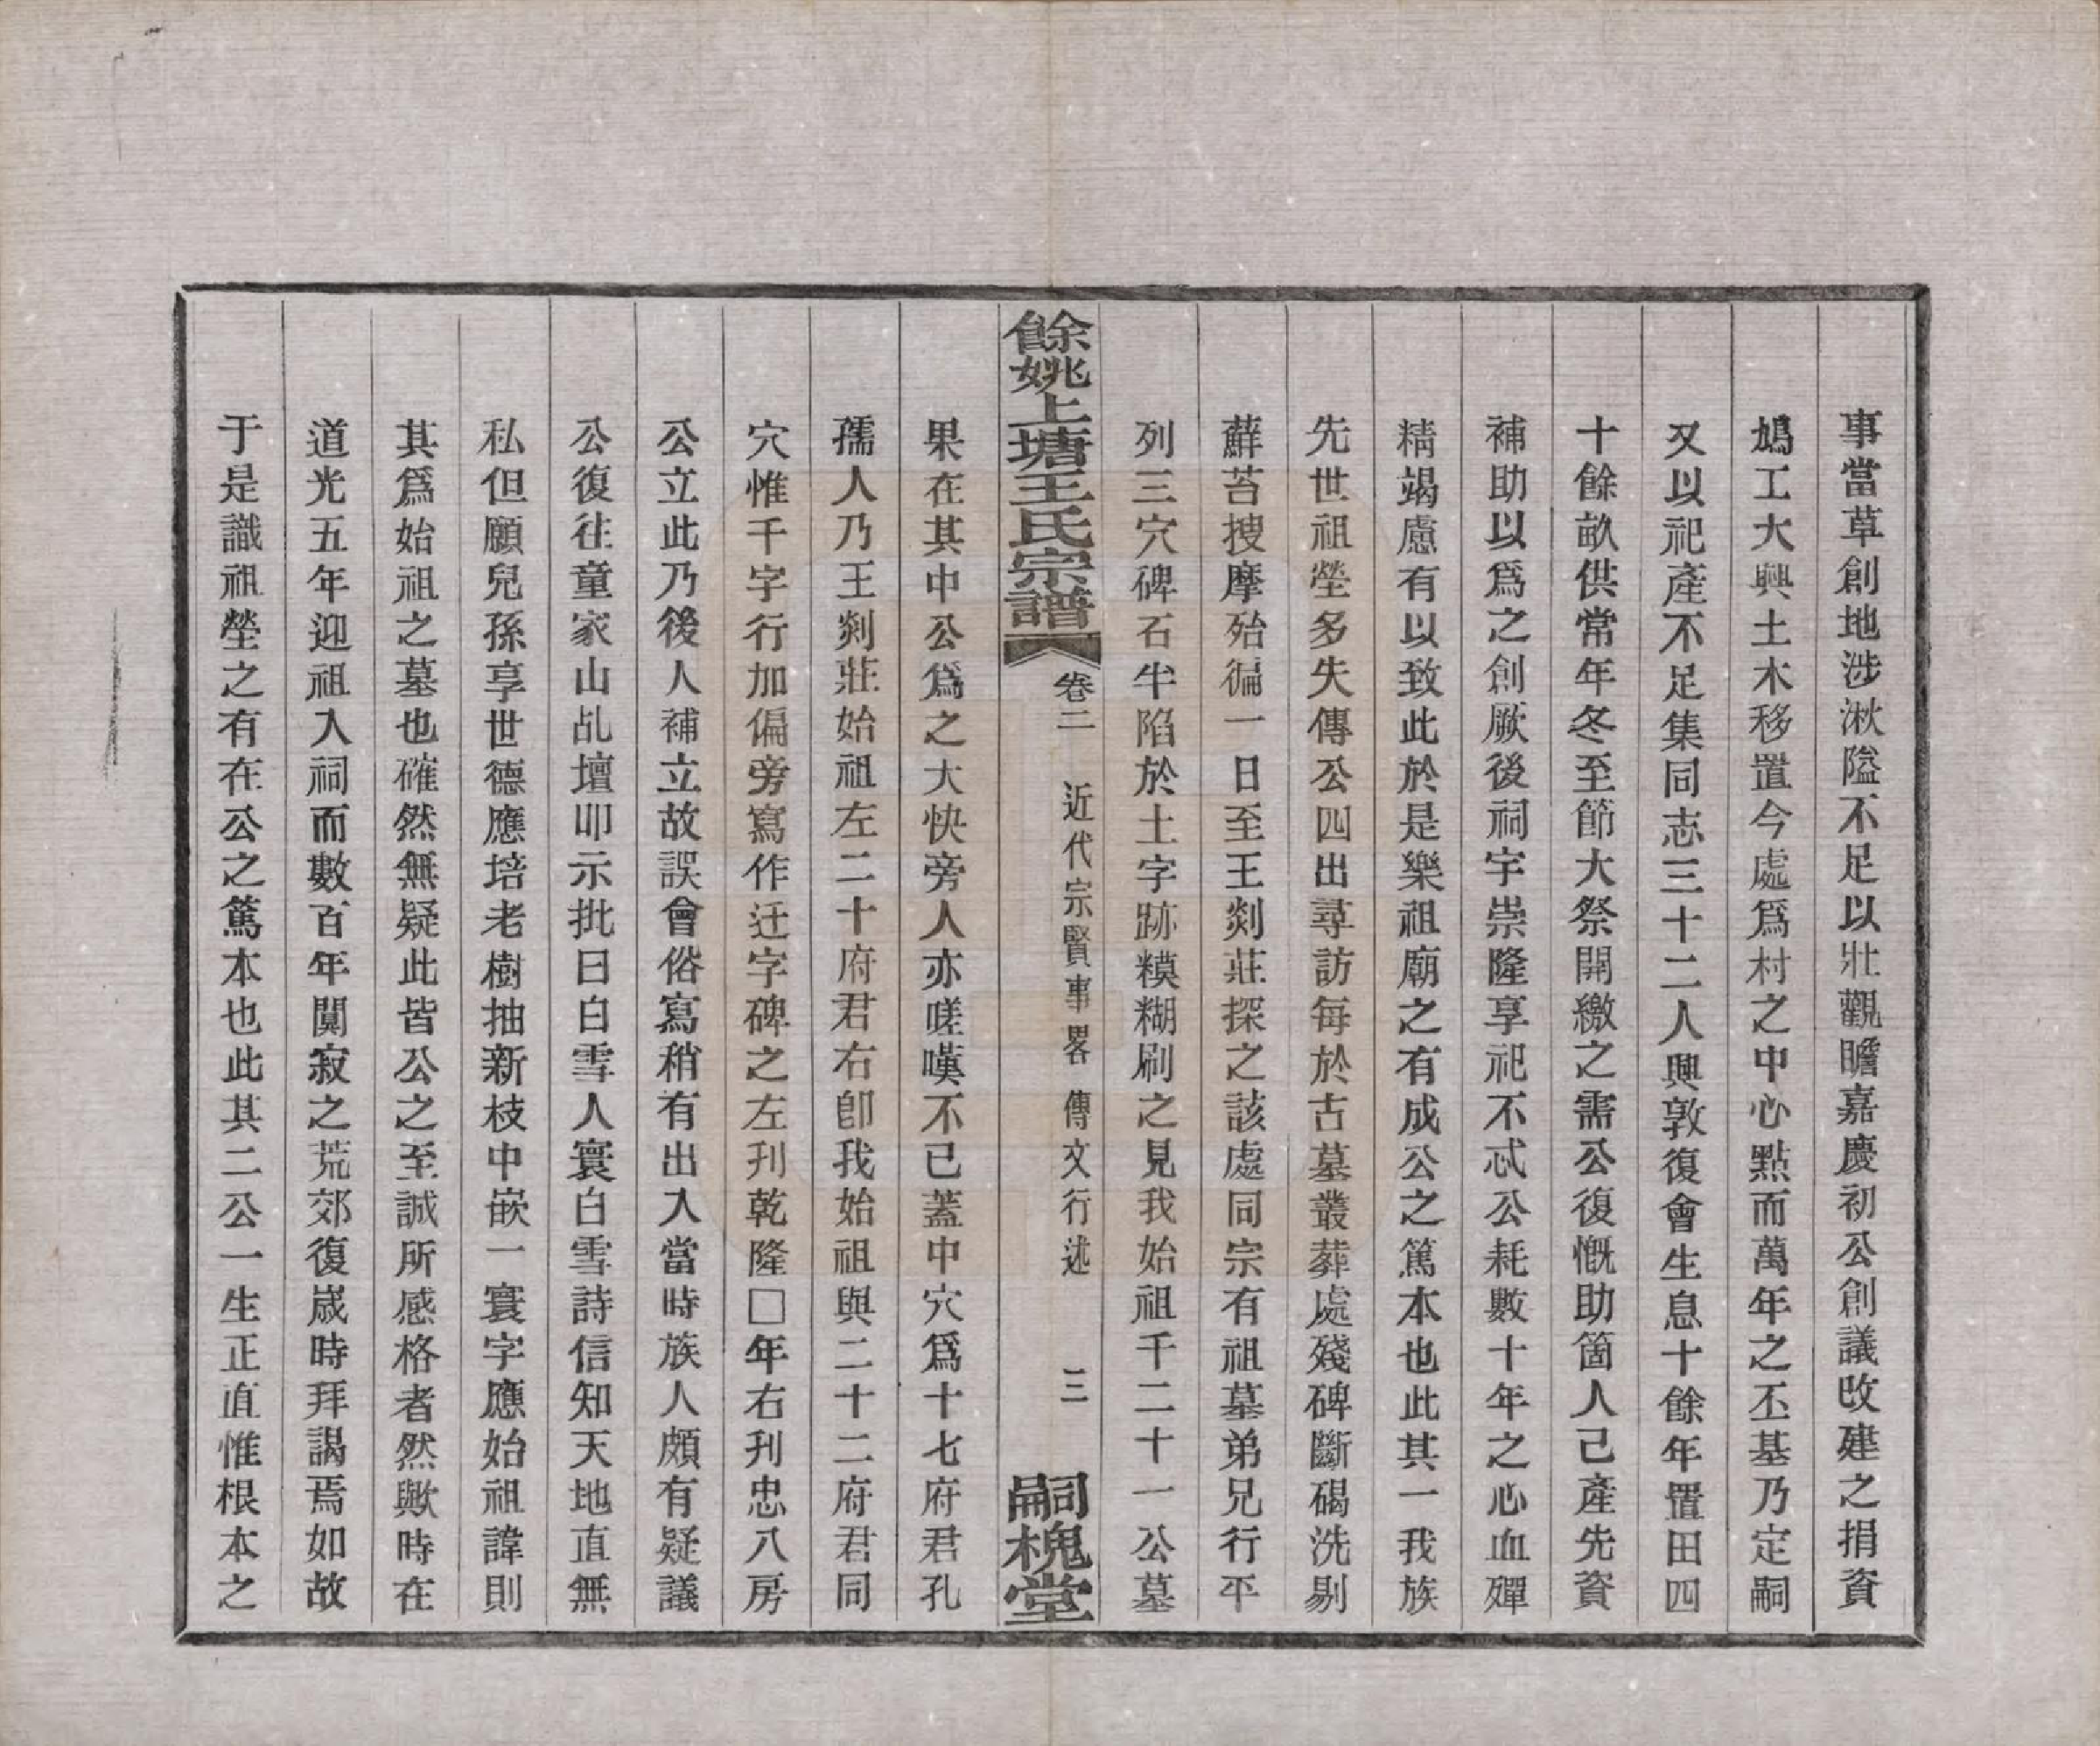 事當草創地涉湫隘不足以壯觀瞻嘉慶初公創議改建之捐資
鳩工大興土木移置今處爲村之中心點而萬年之丕基乃定嗣
又以祀產不足集同志三十二人興敦復會生息十餘年置田四
十餘畝供常年冬至節大祭開繳之需公復慨助箇人己產先資
補助以爲之創厥後祠宇崇隆享祀不忒公耗數十年之心血殫
精竭慮有以致此於是樂祖廟之有成公之篤本也此其一我族
先世祖塋多失傳公四出尋訪每於古墓叢葬處殘碑斷碣洗剔
蘚苔搜摩殆徧一日至王剡莊探之該處同宗有祖墓弟兄行平
列三穴碑石半陷於土字跡糢糊刷之見我始祖千二十一公墓
餘姚上塘王氏宗譜 卷二 近代宗賢事畧 傳文行述 三 嗣槐堂
果在其中公爲之大快旁人亦嗟嘆不已蓋中穴爲十七府君孔
孺人乃王剡莊始祖左二十府君右卽我始祖與二十二府君同
穴惟千字行加偏旁寫作迁字碑之左刋乾隆□年右刋忠八房
公立此乃後人補立故誤會俗寫稍有出入當時族人頗有疑議
公復往童家山乩壇叩示批曰白雪人寰白雪詩信知天地直無
私但願兒孫享世德應培老樹抽新枝中嵌一寰字應始祖諱則
其爲始祖之墓也確然無疑此皆公之至誠所感格者然歟時在
道光五年迎祖入祠而數百年闃寂之荒郊復嵗時拜謁焉如故
于是識祖塋之有在公之篤本也此其二公一生正直惟根本之